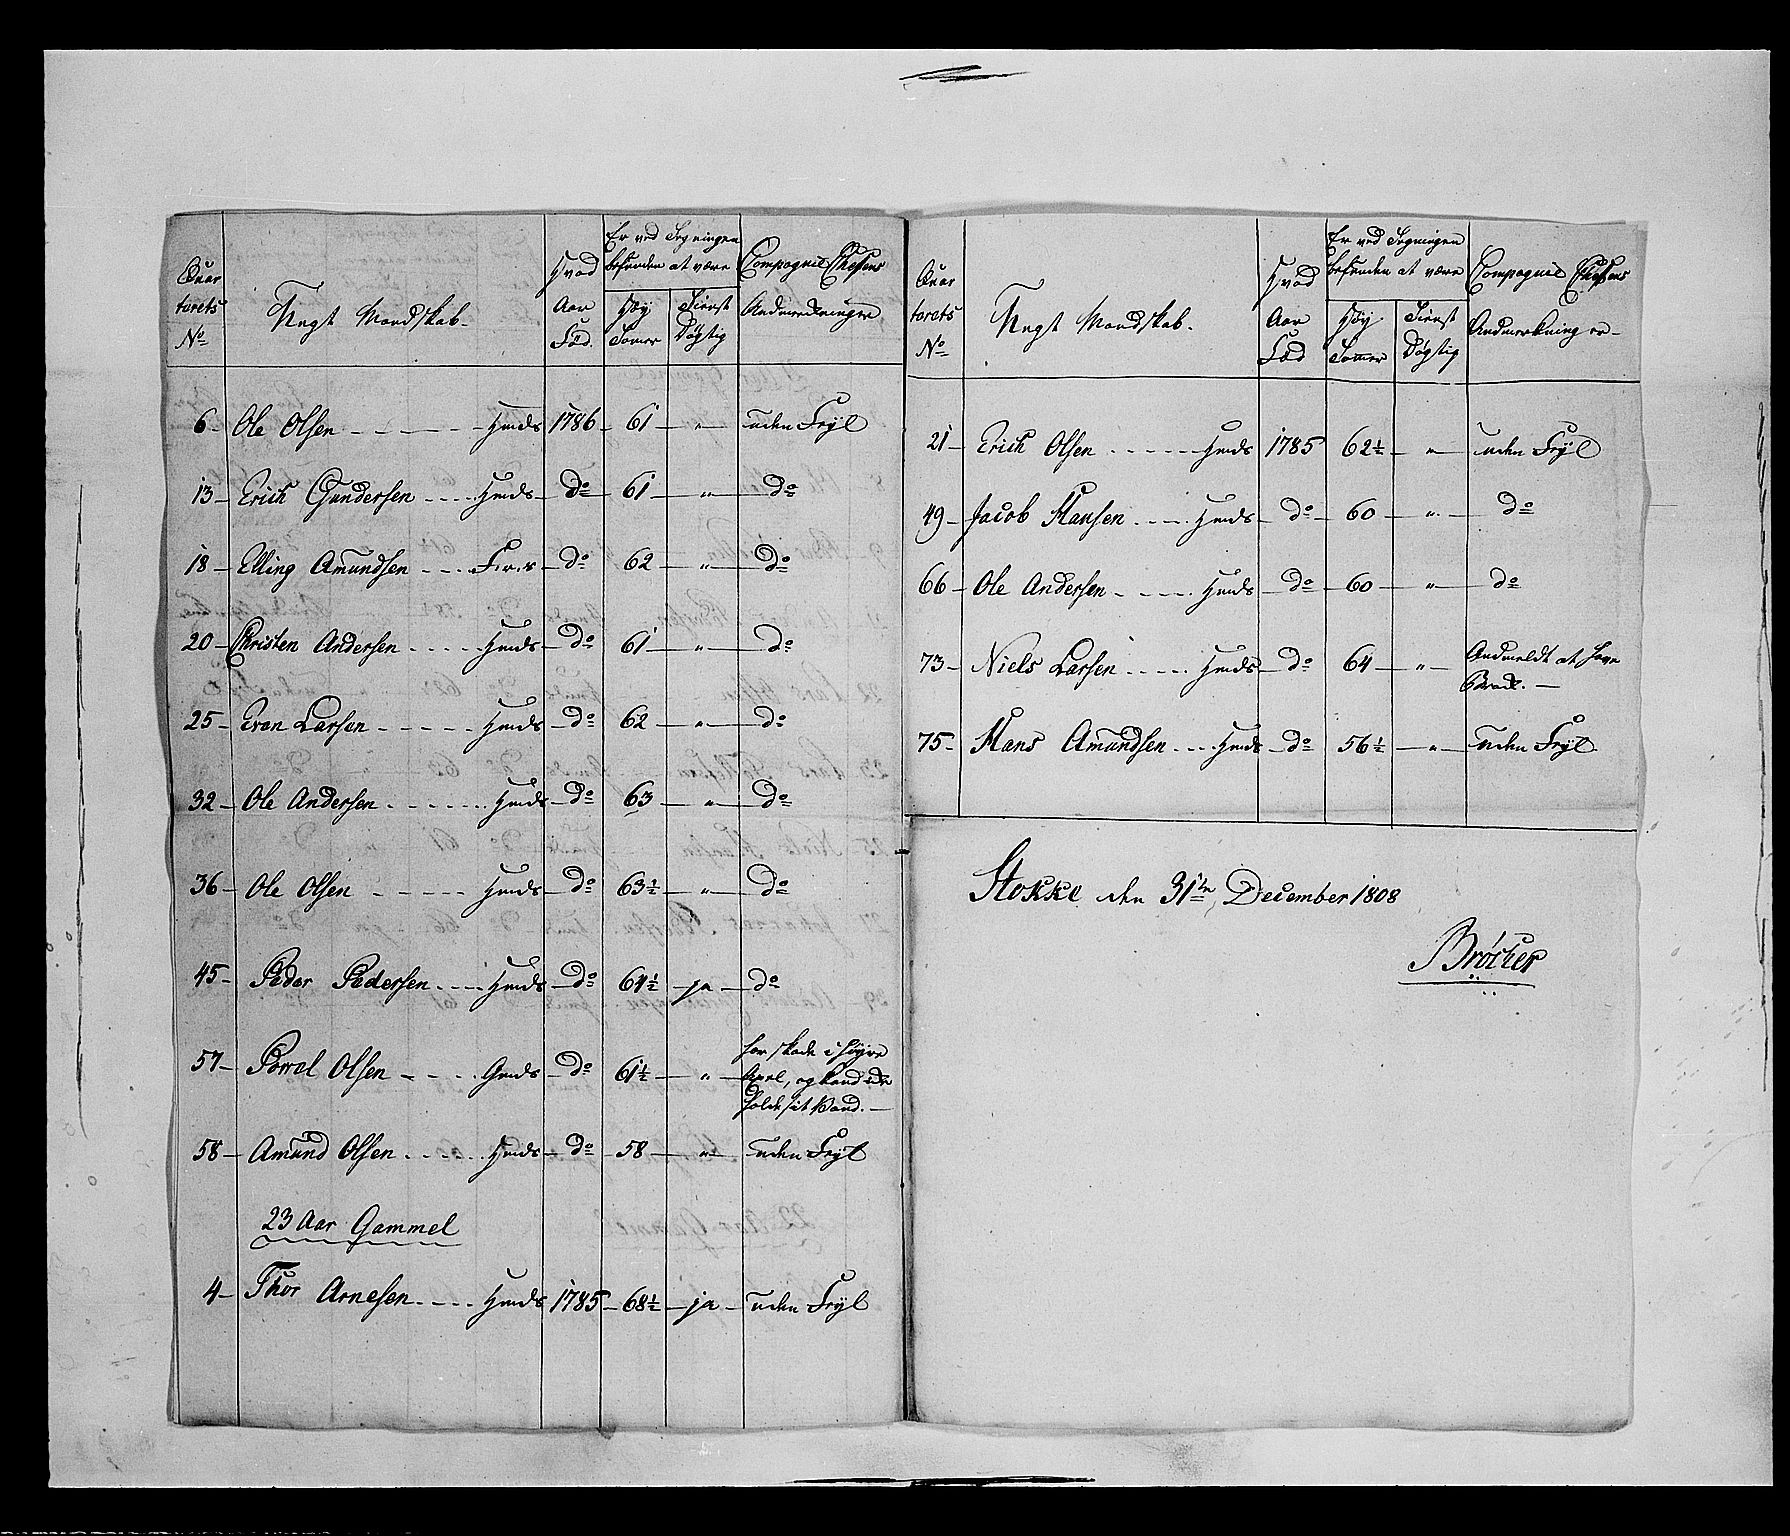 Quar
terets
No
Ungt Mandskab.
Hvad
Aar
Fød.
Er ved Segningen
befunden at være
Høy
Tomer
Tienst
Dygtig
Compagnie Chefens
Andmerkninger
6 Ole Olsen 1786 61 " uden Feyl
13 Erich Gundersen do 61 " do
18 Elling Amundsen do 62 " do
20 Christen Andersen do 61 " do
25 Even Larsen do 62 " do
32 Ole Andersen do 63 " do
36 Ole Olsen do 63½ " do
45 Peder Pedersen do 64½ ja do
57 Povel Olsen do 61½ " har skade i høyre
og kand ikke
holde sit Vand.
58 Amund Olsen do 58 " uden Feyl
23 Aar Gammel
4 Thor Arnesen 1785 68½ ja uden Feyl
Quar
terets
No
Ungt Mandskab.
Hvad
Aar
Fød
Er ved Segningen
befunden at være
Høy
Tomer
Tienst
Dygtig
Compagnie Chefens
Andmerkninger
21 Erich Olsen 1785 62½ " uden Feyl
49 Jacob Hansen do 60 " do
66 Ole Andersen do 60 " do
73 Niels Larsen do 64 " Andmeldt at have
Brock.
75 Hans Amundsen do 56½ " uden Feyl
Stokke den 31te December 1808
Brøcher